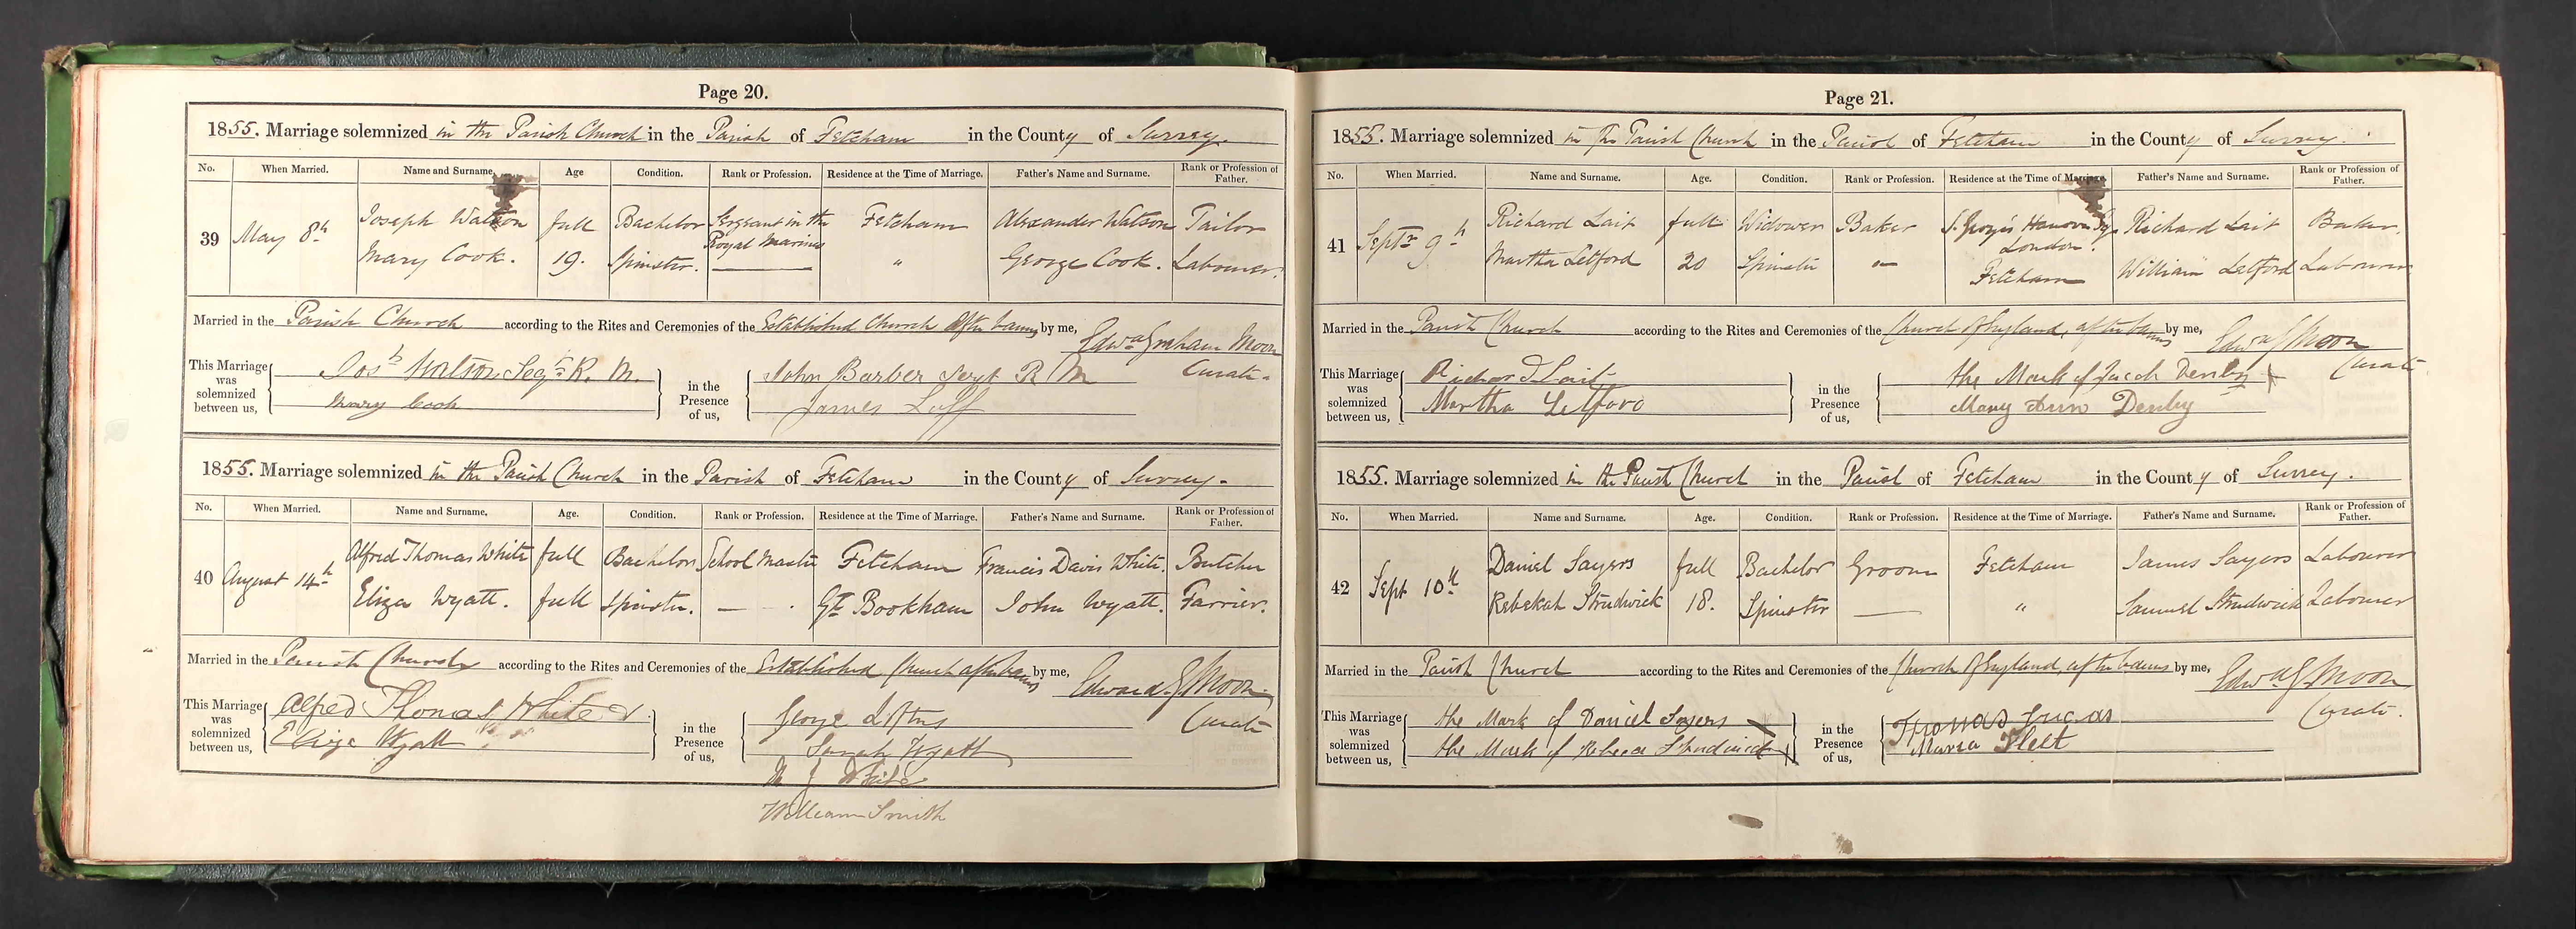 Page 20.
1855. Marriage solemnized in the Parish Church in the Parish of Fetcham in the County of Surrey.
No. When Married. Name and Surname. Age Condition. Rank or Profession. Residence at the Time of Marriage. Father's Name and Surname. Rank or Profession of Father.
39 May 8th Joseph Watson full Bachelor Sergeant in the Royal Marines Fetcham Alexander Watson Tailor
Mary Cook. 19. Spinster. " George Cook. Labourer.
Married in the Parish Church according to the Rites and Ceremonies of the Established Church after banns by me, Edwd Graham Moon
Curate.
This Marriage was solemnized between us, Josh Watson Segt R. M. in the Presence of us, John Barber Serjt R M
Mary Cook James Luff
1855. Marriage solemnized in the Parish Church in the Parish of Fetcham in the County of Surrey.
No. When Married. Name and Surname. Age. Condition. Rank or Profession. Residence at the Time of Marriage. Father's Name and Surname. Rank or Profession of Father.
40 August 14th Alfred Thomas White full Bachelor School Master Fetcham Francis Davis White. Butcher
Eliza Wyatt. full Spinster. — Gt Bookham John Wyatt. Farrier.
Married in the Parish Church according to the Rites and Ceremonies of the Established Church after banns by me, Edward G Moon
Curate
This Marriage was solemnized between us, Alfred Thomas White in the Presence of us, George Loftus
Eliza Wyatt Sarah Wyatt
M J White
William Smith
Page 21.
1855. Marriage solemnized in the Parish Church in the Parish of Fetcham in the County of Surrey.
No. When Married. Name and Surname. Age. Condition. Rank or Profession. Residence at the Time of Marriage. Father's Name and Surname. Rank or Profession of Father.
41 Septr 9th Richard Lait full Widower Baker St. George's Hanover Sq London. Richard Lait Baker.
Martha Letford 20 Spinster — Fetcham William Letford Labourer
Married in the Parish Church according to the Rites and Ceremonies of the Church of England, after banns by me, Edwd G Moon
Curate
This Marriage was solemnized between us, Richard Lait in the Presence of us, the Mark of Jacob Denby X
Martha Letford Mary Ann Denby
1855. Marriage solemnized in the Parish Church in the Parish of Fetcham in the County of Surrey.
No. When Married. Name and Surname. Age. Condition. Rank or Profession. Residence at the Time of Marriage. Father's Name and Surname. Rank or Profession of Father.
42 Sept 10th Daniel Sayers full Bachelor Groom Fetcham James Sayers Labourer
Rebekah Strudwick 18. Spinster — " Samuel Strudwick Labourer
Married in the Parish Church according to the Rites and Ceremonies of the Church of England, after banns by me, Edwd G. Moon
Curate.
This Marriage was solemnized between us, the Mark of Daniel Sayers X in the Presence of us, Thomas Lucas
the Mark of Rebecca Strudwick X Maria